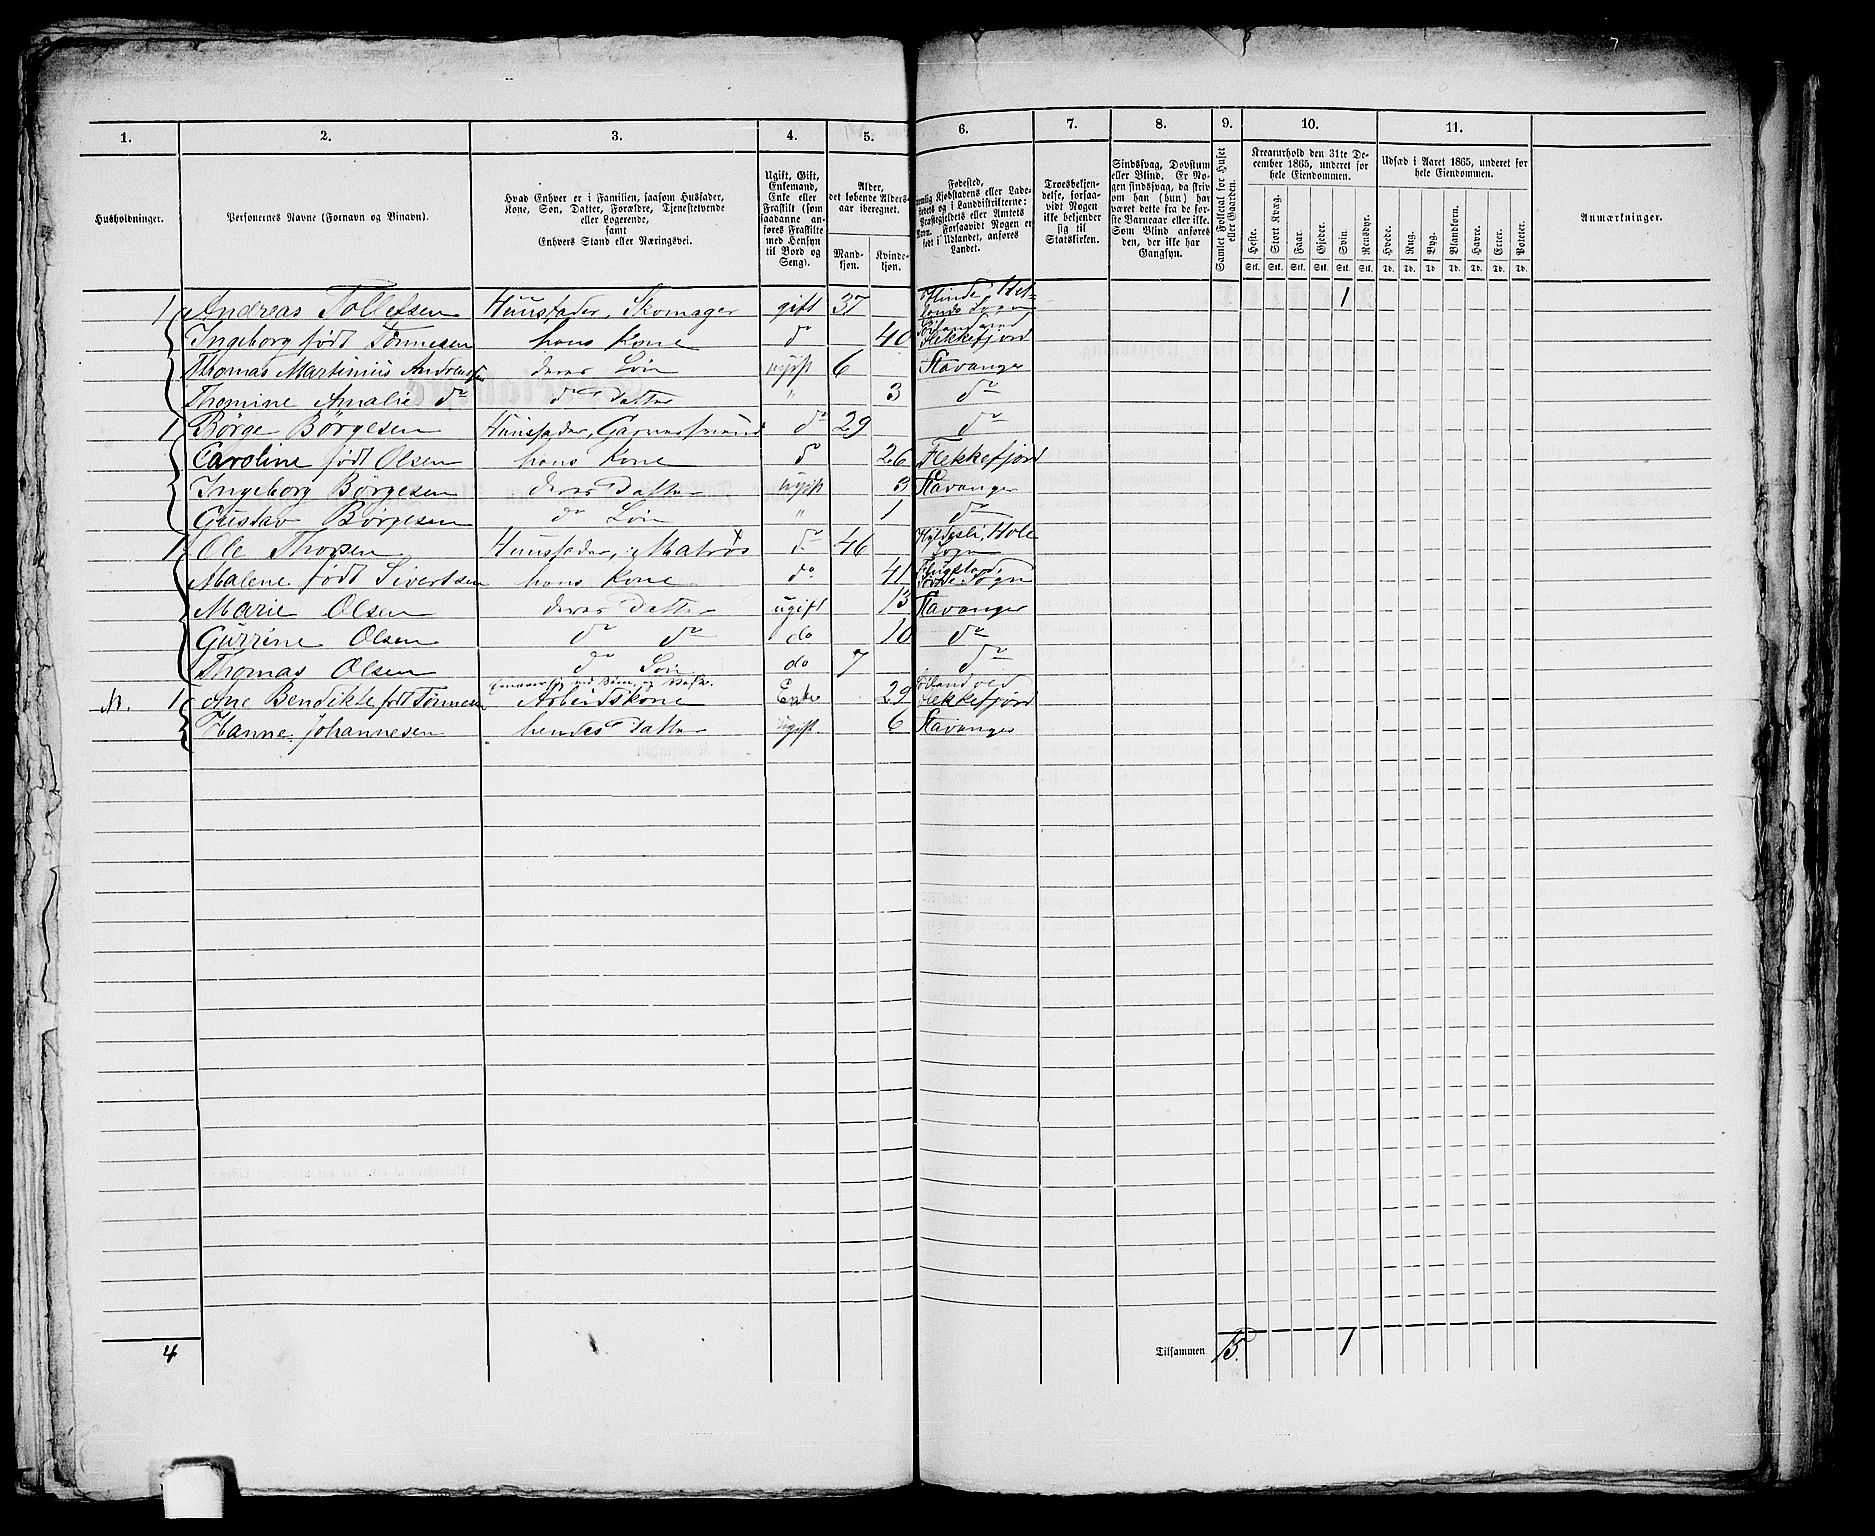 1. 2. 3. 4. 5. 6. 7. 8. 9. 10. 11.
Husholdninger.
Personernes Navne (Fornavn og Binavn).
Hvad Enhver er i Familien, saasom Husfader,
Kone, Søn, Datter, Forældre, Tjenestetyende
eller Logerende,
samt
Enhvers Stand eller Næringsvei.
Ugift, Gift,
Enkemand,
Enke eller
Fraskilt (som
saadanne an-
føres Fraskilte
med Hensyn
til Bord og
Seng).
Alder,
det løbende Alders-
aar iberegnet.
Mand-
kjøn.
Kvinde-
kjøn.
Fødested,
nemlig Kjøbstadens eller Lade-
stedets og i Landdistrikterne:
Præstegjeldets eller Amtets
Navn. Forsaavidt Nogen er
født i Udlandet, anføres
Landet.
Troesbekjen-
delse, forsaa-
vidt Nogen
ikke bekjender
sig til
Statskirken.
Sindssvag, Døvstum
eller Blind. Er No-
gen sindssvag, da skriv
om han (hun) har
været dette fra de før-
ste Barneaar eller ikke.
Som Blind anføres
den, der ikke har
Gangsyn.
Samlet Folketal for Huset
eller Gaarden.
Kreaturhold den 31te De-
cember 1865, underet for
hele Eiendommen.
Heste. Stort Kvæg. Faar. Gjeder. Svin. Rensdyr.
Stk. Stk. Stk. Stk. Stk. Stk.
Udsæd i Aaret 1865, underet for
hele Eiendommen.
Hvede. Rug. Byg. Blandkorn. Havre. Erter. Poteter.
Td. Td. Td. Td. Td. Td. Td.
Anmærkninger.
1 Andreas Tollefsen Huusfader, Skomager gift 37 1
Ingeborg født Tønnesen hans Kone do 40 Flekkefjord
Thomas Martinius Andreassen deres Søn ugift 6 Stavanger
Thomine Amalie do do Datter " 3 do
1 Børge Børgesen Huusfader, do 29 do
Caroline født Olsen hans Kone do 26 Flekkefjord
Ingeborg Børgesen deres Datter ugift 3 Stavanger
Gustav Børgesen do Søn " 1 do
1 Ole Thorsen Huusfader, Matros do 46 Hole Sogn
Malene født Sivertsen hans Kone do 41 Sogn
Marie Olsen deres Datter ugift 13 Stavanger
Gurrine Olsen do do do 10 do
Thomas Olsen do Søn do 7 do
1 Ane Bendikte født Tønnesen Arbeidskone Enke 29 Flekkefjord
Hanne Johannesen hendes Datter ugift 6 Stavanger
4 Tilsammen 15. 1